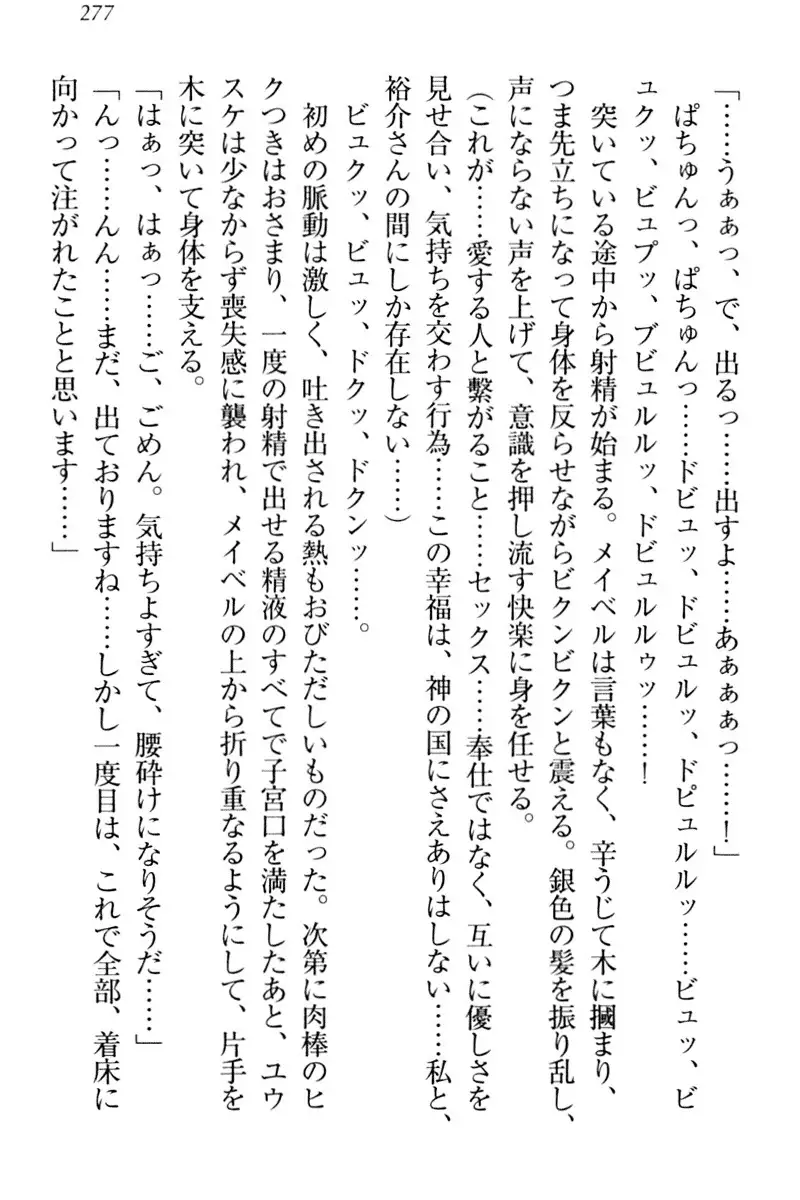 277
「……うぁぁっ、で、出るっ……出すよ……あぁぁぁっ……！」
ぱちゅんっ、ぱちゅんっ……ドビュッ、ドビュルッ、ドピュルルッ……ビュッ、ビ
ュクッ、ビュプッ、ブビュルルッ、ドビュルルゥッ……！
突いている途中から射精が始まる。メイベルは言葉もなく、辛うじて木に摑まり、
つま先立ちになって身体を反らせながらビクンビクンと震える。銀色の髪を振り乱し、
声にならない声を上げて、意識を押し流す快楽に身を任せる。
（これが……愛する人と繋がること……セックス……奉仕ではなく、互いに優しさを
見せ合い、気持ちを交わす行為……この幸福は、神の国にさえありはしない……私と、
裕介さんの間にしか存在しない……）
ビュクッ、ビュッ、ドクッ、ドクンッ……。
初めの脈動は激しく、吐き出される熱もおびただしいものだった。次第に肉棒のヒ
クつきはおさまり、一度の射精で出せる精液のすべてで子宮口を満たしたあと、ユウ
スケは少なからず喪失感に襲われ、メイベルの上から折り重なるようにして、片手を
木に突いて身体を支える。
「はぁっ、はぁっ……ご、ごめん。気持ちよすぎて、腰砕けになりそうだ……」
「んっ……んん……まだ、出ておりますね……しかし一度目は、これで全部、着床に
向かって注がれたことと思います……」